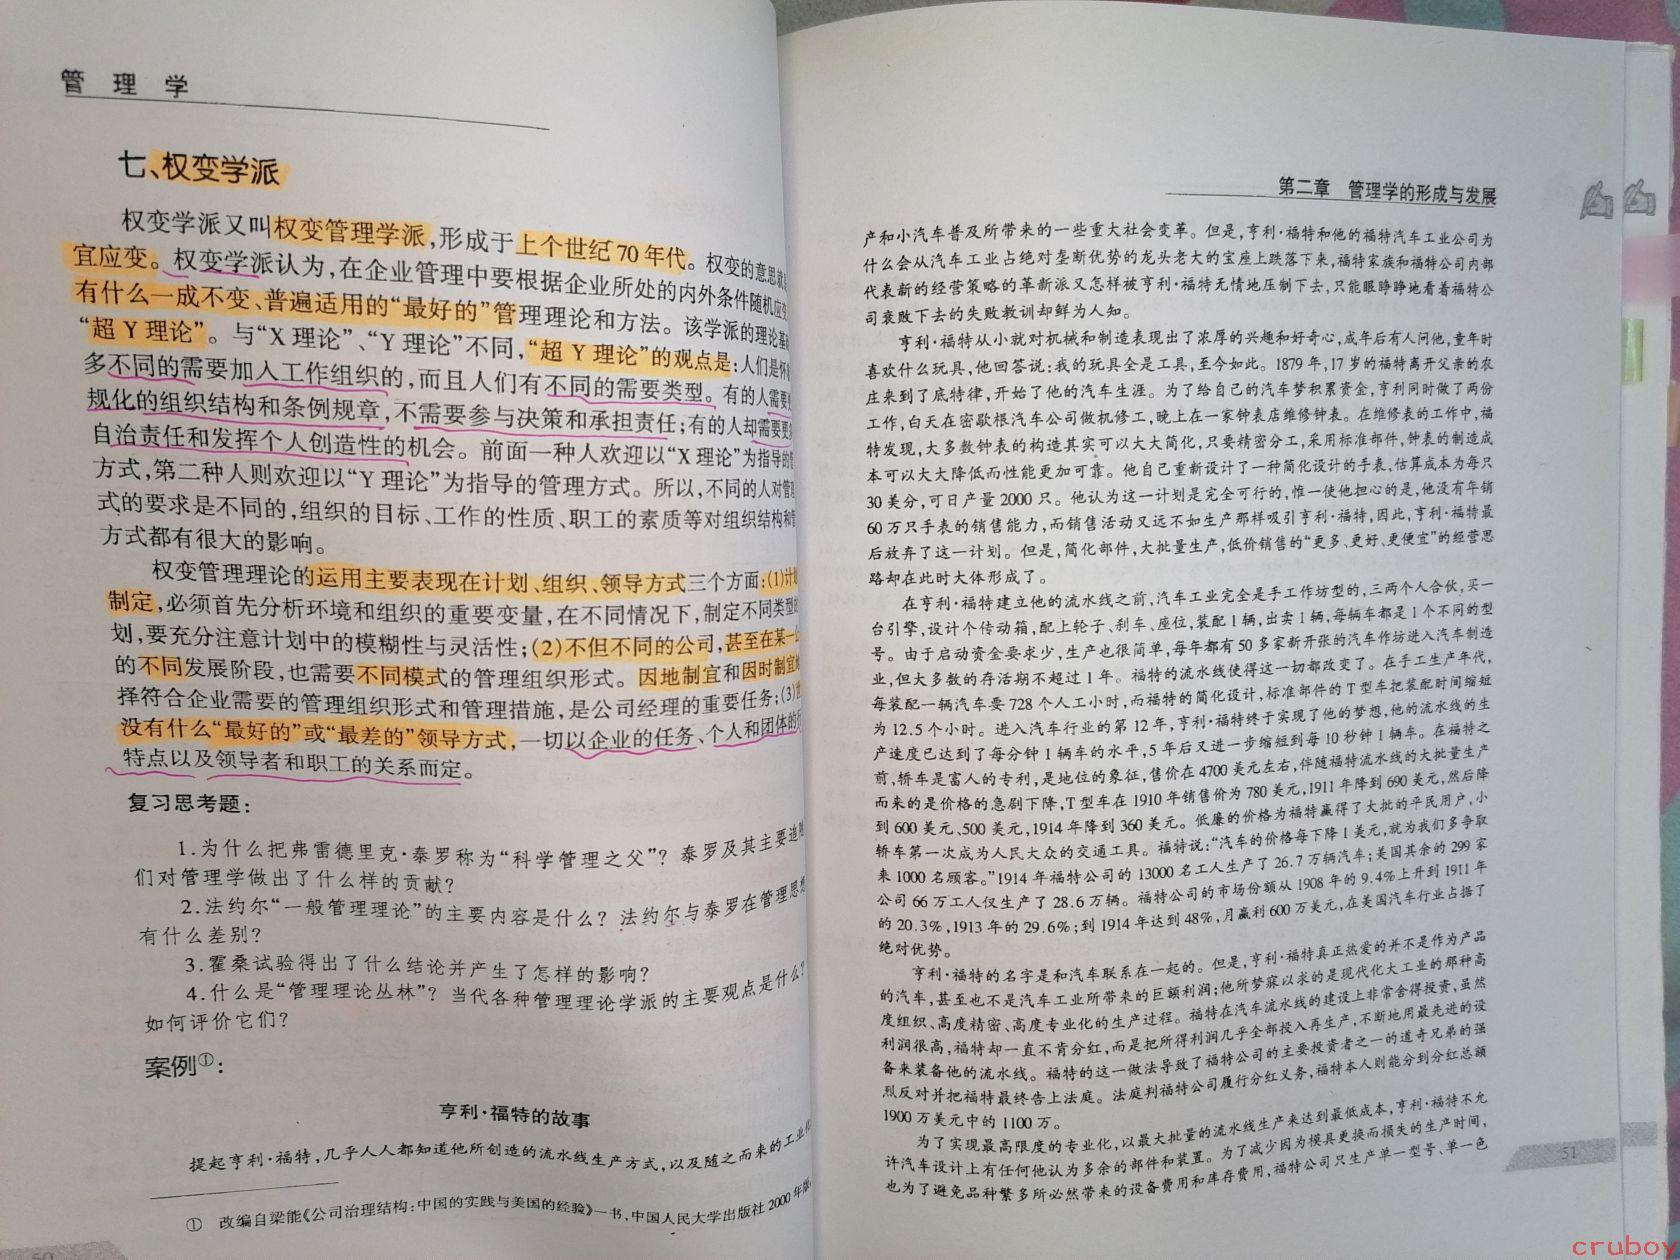 管 理 学
七、权变学派
权变学派又叫权变管理学派,形成于上个世纪70年代。权变的意思就是
宜应变。权变学派认为,在企业管理中要根据企业所处的内外条件随机应变
有什么一成不变、普遍适用的“最好的”管理理论和方法。该学派的理论基
“超 Y 理论”。与“X 理论”、“Y 理论”不同,“超 Y 理论”的观点是:人们是怀
多不同的需要加入工作组织的,而且人们有不同的需要类型。有的人需要
规化的组织结构和条例规章,不需要参与决策和承担责任;有的人却需要更
自治责任和发挥个人创造性的机会。前面一种人欢迎以“X 理论”为指导的
方式,第二种人则欢迎以“Y 理论”为指导的管理方式。所以,不同的人对管理
式的要求是不同的,组织的目标、工作的性质、职工的素质等对组织结构和
方式都有很大的影响。
权变管理理论的运用主要表现在计划、组织、领导方式三个方面:(1)计划
制定,必须首先分析环境和组织的重要变量,在不同情况下,制定不同类型
划,要充分注意计划中的模糊性与灵活性;(2)不但不同的公司,甚至在某一
的不同发展阶段,也需要不同模式的管理组织形式。因地制宜和因时制宜
择符合企业需要的管理组织形式和管理措施,是公司经理的重要任务;(3)
没有什么“最好的”或“最差的”领导方式,一切以企业的任务、个人和团体的
特点以及领导者和职工的关系而定。
复习思考题:
1.为什么把弗雷德里克·泰罗称为“科学管理之父”? 泰罗及其主要追随
们对管理学做出了什么样的贡献?
2.法约尔“一般管理理论”的主要内容是什么? 法约尔与泰罗在管理思想
有什么差别?
3.霍桑试验得出了什么结论并产生了怎样的影响?
4.什么是“管理理论丛林”? 当代各种管理理论学派的主要观点是什么?
如何评价它们?
案例①:
亨利·福特的故事
提起亨利·福特,几乎人人都知道他所创造的流水线生产方式,以及随之而来的工业
① 改编自梁能《公司治理结构:中国的实践与美国的经验》一书,中国人民大学出版社 2000 年版
50
第二章 管理学的形成与发展
产和小汽车普及所带来的一些重大社会变革。但是,亨利·福特和他的福特汽车工业公司为
什么会从汽车工业占绝对垄断优势的龙头老大的宝座上跌落下来,福特家族和福特公司内部
代表新的经营策略的革新派又怎样被亨利·福特无情地压制下去,只能眼睁睁地看着福特公
司衰败下去的失败教训却鲜为人知。
亨利·福特从小就对机械和制造表现出了浓厚的兴趣和好奇心,成年后有人问他,童年时
喜欢什么玩具,他回答说:我的玩具全是工具,至今如此。1879 年,17 岁的福特离开父亲的农
庄来到了底特律,开始了他的汽车生涯。为了给自己的汽车梦积累资金,亨利同时做了两份
工作,白天在密歇根汽车公司做机修工,晚上在一家钟表店维修钟表。在维修表的工作中,福
特发现,大多数钟表的构造其实可以大大简化,只要精密分工,采用标准部件,钟表的制造成
本可以大大降低而性能更加可靠。他自己重新设计了一种简化设计的手表,估算成本为每只
30 美分,可日产量 2000 只。他认为这一计划是完全可行的,惟一使他担心的是,他没有年销
60 万只手表的销售能力,而销售活动又远不如生产那样吸引亨利·福特,因此,亨利·福特最
后放弃了这一计划。但是,简化部件,大批量生产,低价销售的“更多、更好、更便宜”的经营思
路却在此时大体形成了。
在亨利·福特建立他的流水线之前,汽车工业完全是手工作坊型的,三两个人合伙,买一
台引擎,设计个传动箱,配上轮子、刹车、座位,装配 1 辆,出卖 1 辆,每辆车都是 1 个不同的型
号。由于启动资金要求少,生产也很简单,每年都有 50 多家新开张的汽车作坊进入汽车制造
业,但大多数的存活期不超过 1 年。福特的流水线使得这一切都改变了。在手工生产年代,
每装配一辆汽车要 728 个人工小时,而福特的简化设计,标准部件的 T 型车把装配时间缩短
为 12.5 个小时。进入汽车行业的第 12 年,亨利·福特终于实现了他的梦想,他的流水线的生
产速度已达到了每分钟 1 辆车的水平,5 年后又进一步缩短到每 10 秒钟 1 辆车。在福特之
前,轿车是富人的专利,是地位的象征,售价在 4700 美元左右,伴随福特流水线的大批量生产
而来的是价格的急剧下降,T 型车在 1910 年销售价为 780 美元,1911 年降到 690 美元,然后降
到 600 美元、500 美元,1914 年降到 360 美元。低廉的价格为福特赢得了大批的平民用户,小
轿车第一次成为人民大众的交通工具。福特说:“汽车的价格每下降 1 美元,就为我们多争取
来 1000 名顾客。”1914 年福特公司的 13000 名工人生产了 26.7 万辆汽车;美国其余的 299 家
公司 66 万工人仅生产了 28.6 万辆。福特公司的市场份额从 1908 年的 9.4%上升到 1911 年
的 20.3%,1913 年的 29.6%;到 1914 年达到 48%,月赢利 600 万美元,在美国汽车行业占据了
绝对优势。
亨利·福特的名字是和汽车联系在一起的。但是,亨利·福特真正热爱的并不是作为产品
的汽车,甚至也不是汽车工业所带来的巨额利润;他所梦寐以求的是现代化大工业的那种高
度组织、高度精密、高度专业化的生产过程。福特在汽车流水线的建设上非常舍得投资,虽然
利润很高,福特却一直不肯分红,而是把所得利润几乎全部投入再生产,不断地用最先进的设
备来装备他的流水线。福特的这一做法导致了福特公司的主要投资者之一的道奇兄弟的强
烈反对并把福特最终告上法庭。法庭判福特公司履行分红义务,福特本人则能分到分红总额
1900 万美元中的 1100 万。
为了实现最高限度的专业化,以最大批量的流水线生产来达到最低成本,亨利·福特不允
许汽车设计上有任何他认为多余的部件和装置。为了减少因为模具更换而损失的生产时间,
也为了避免品种繁多所必然带来的设备费用和库存费用,福特公司只生产单一型号、单一色
51
cruboy